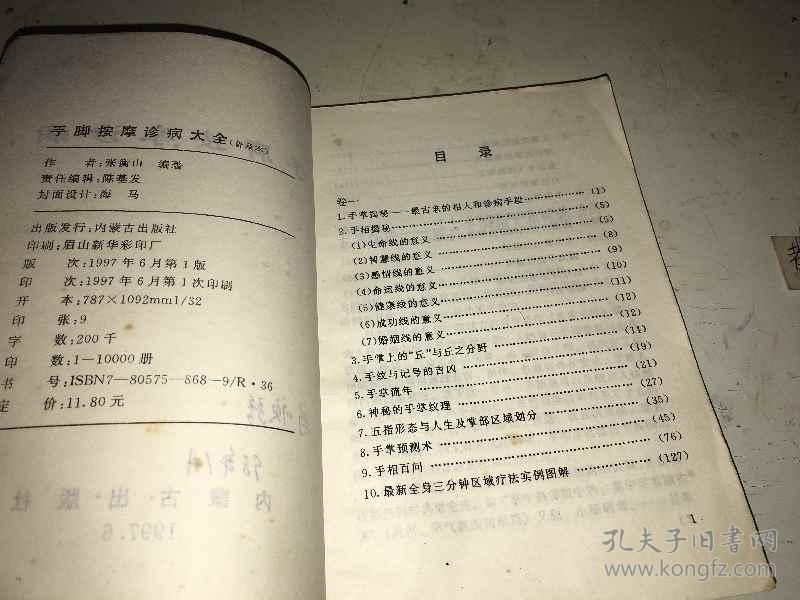 手脚按摩诊病大全
作 者：张衡山 编著
责任编辑：陈基发
封面设计：海 马
出版发行：内蒙古出版社
印刷：眉山新华彩印厂
版 次：1997年6月第1版
印 次：1997年6月第1次印刷
开 本：787×1092mml/32
印 张：9
字 数：200千
印 数：1—10000册
书 号：ISBN7—80575—868—9/R·36
定 价：11.80元
98年1月
内蒙古·出·版社
1997.6
目 录
卷一
1.手掌揭秘——最古来的相人和诊病手段 (1)
2.手相揭秘 (5)
(1)生命线的意义 (5)
(2)智慧线的意义 (8)
(3)感情线的意义 (9)
(4)命运线的意义 (10)
(5)健康线的意义 (11)
(6)成功线的意义 (12)
(7)婚姻线的意义 (12)
3.手掌上的“丘”与丘之分野 (14)
4.手纹与记号的吉凶 (19)
5.手掌流年 (21)
6.神秘的手掌纹理 (27)
7.五指形态与人生及掌部区域划分 (35)
8.手掌预测术 (45)
9.手相百问 (76)
10.最新全身三分钟区域疗法实例图解 (127)
1
孔夫子旧书网
www.kongfz.com